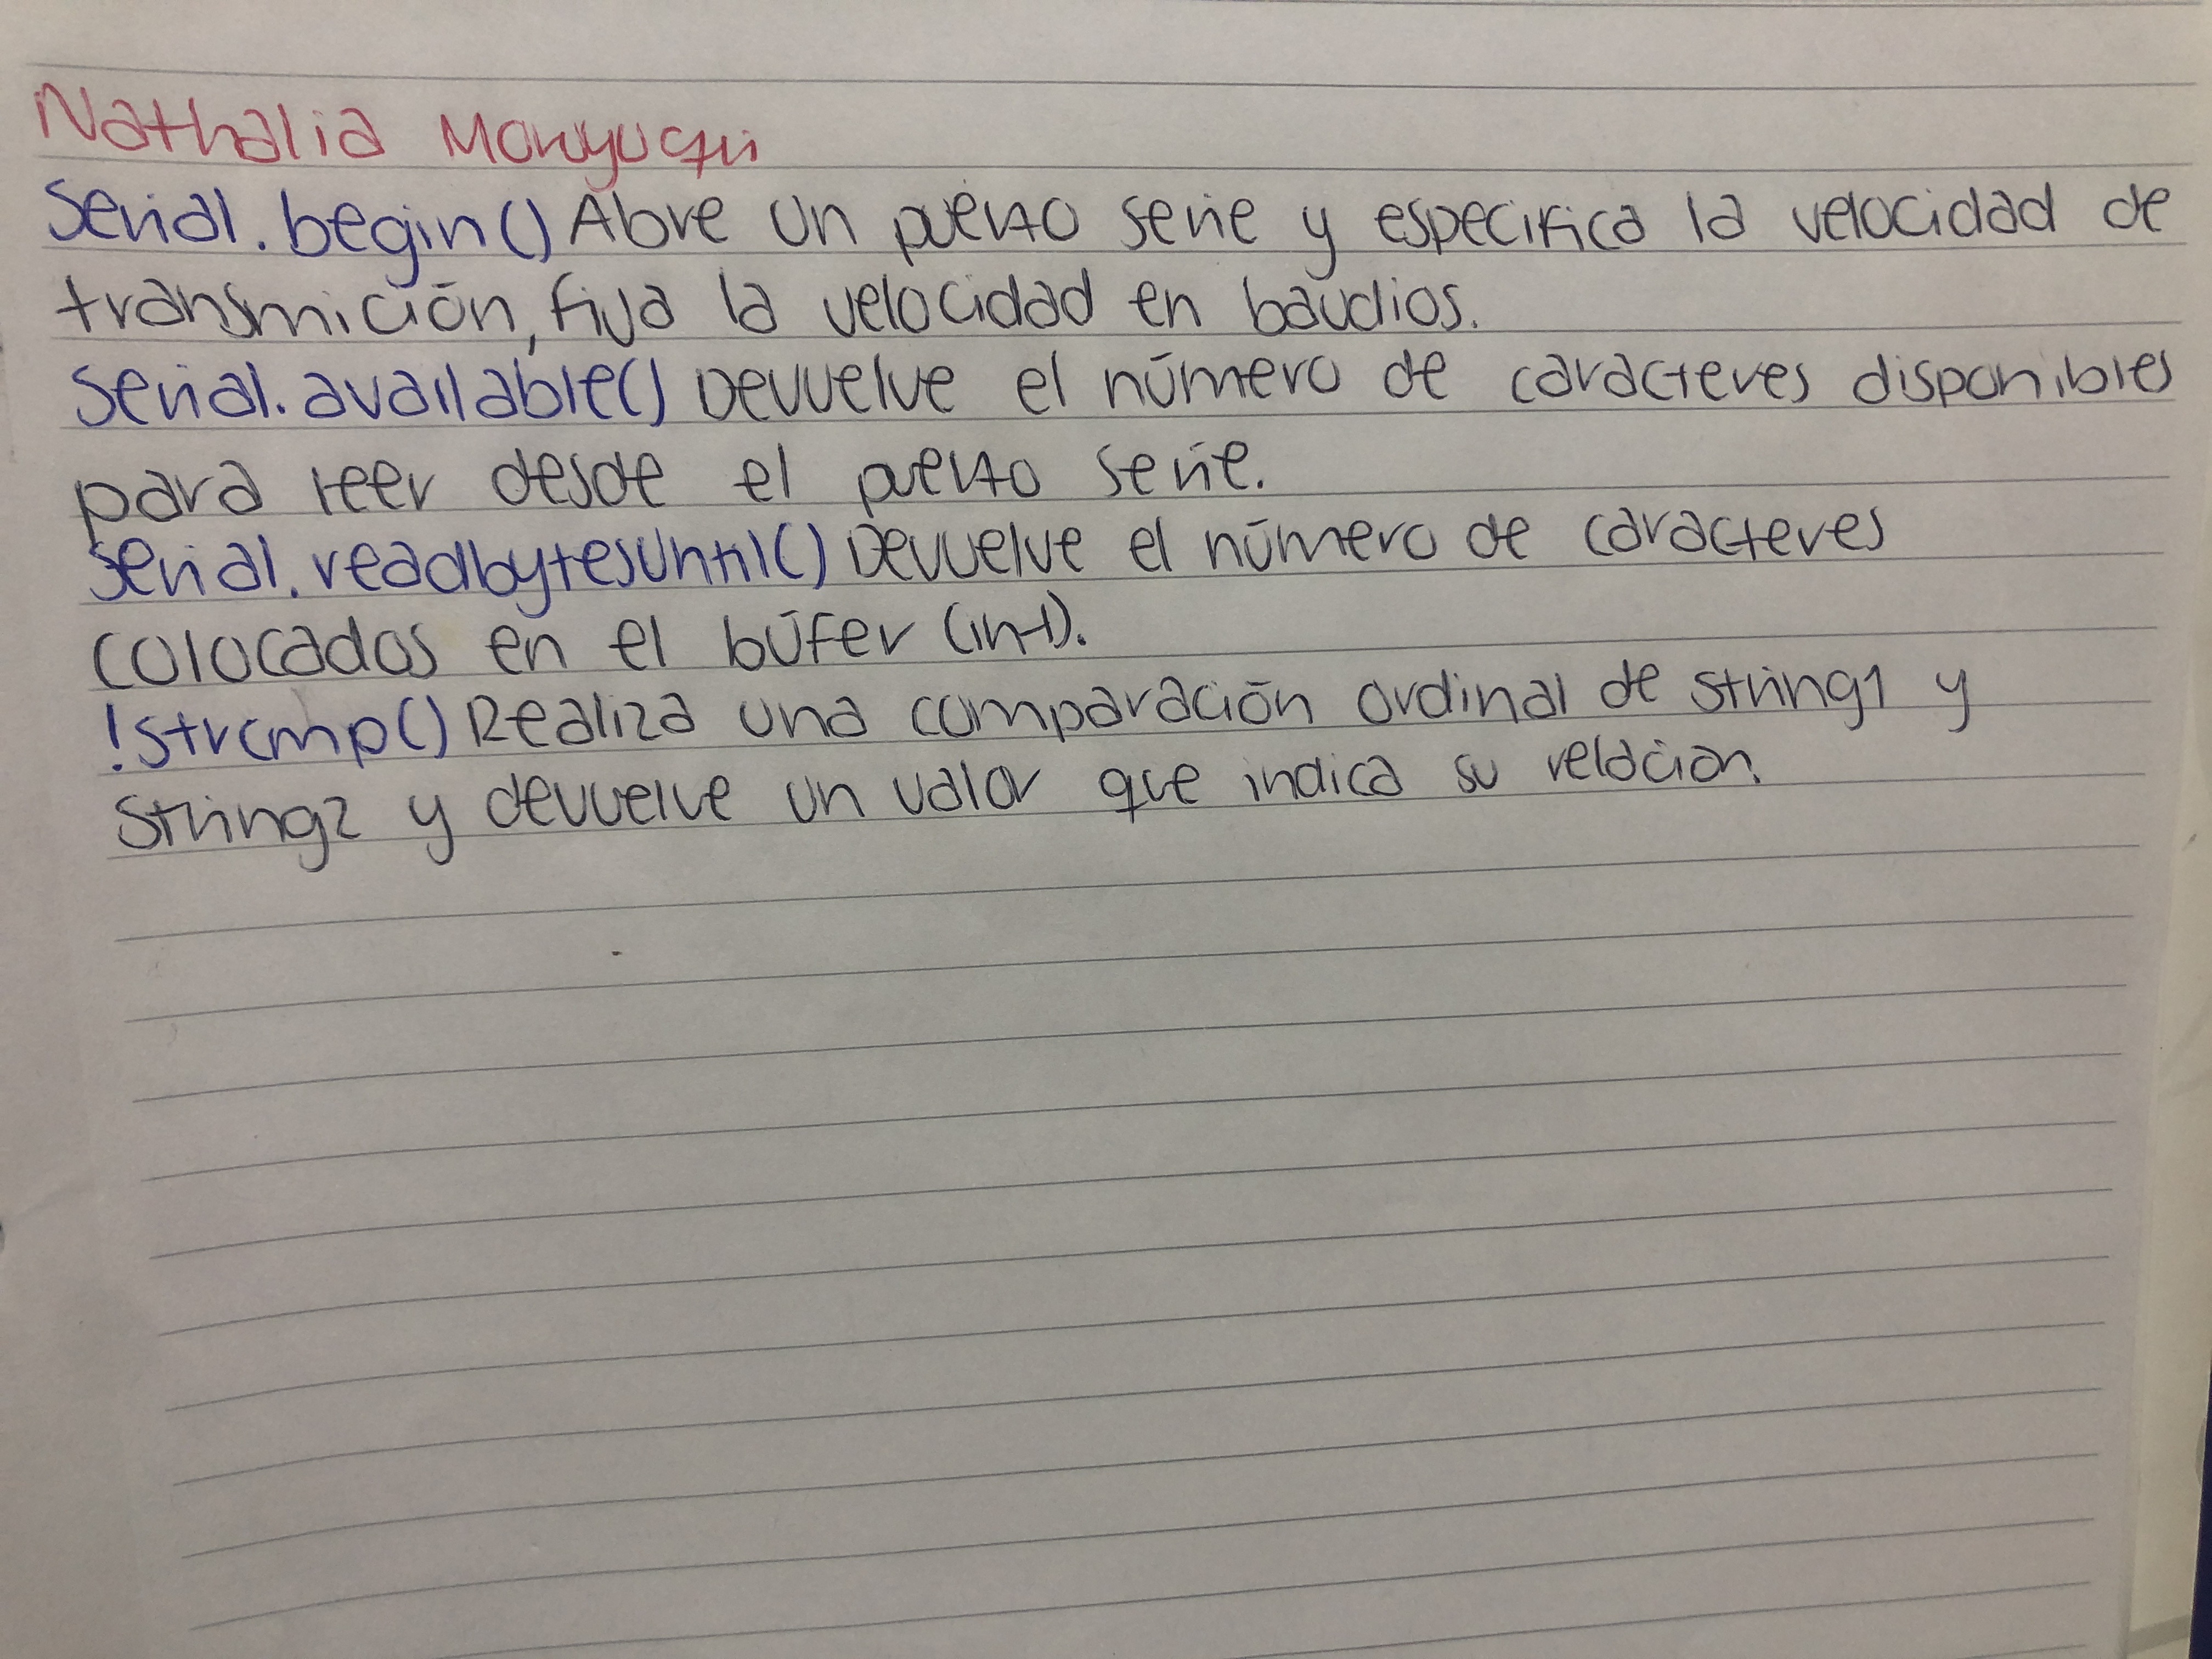 Nathalia
Serial.begin() Abre un puerto serie y especifica la velocidad de
transmición, fija la velocidad en baudios.
Serial.available() Devuelve el número de caracteres disponibles
para leer desde el puerto serie.
Serial.readbytesUntil() Devuelve el número de caracteres
colocados en el búfer (int).
!strcmp() Realiza una comparación ordinal de string1 y
string2 y devuelve un valor que indica su relación.